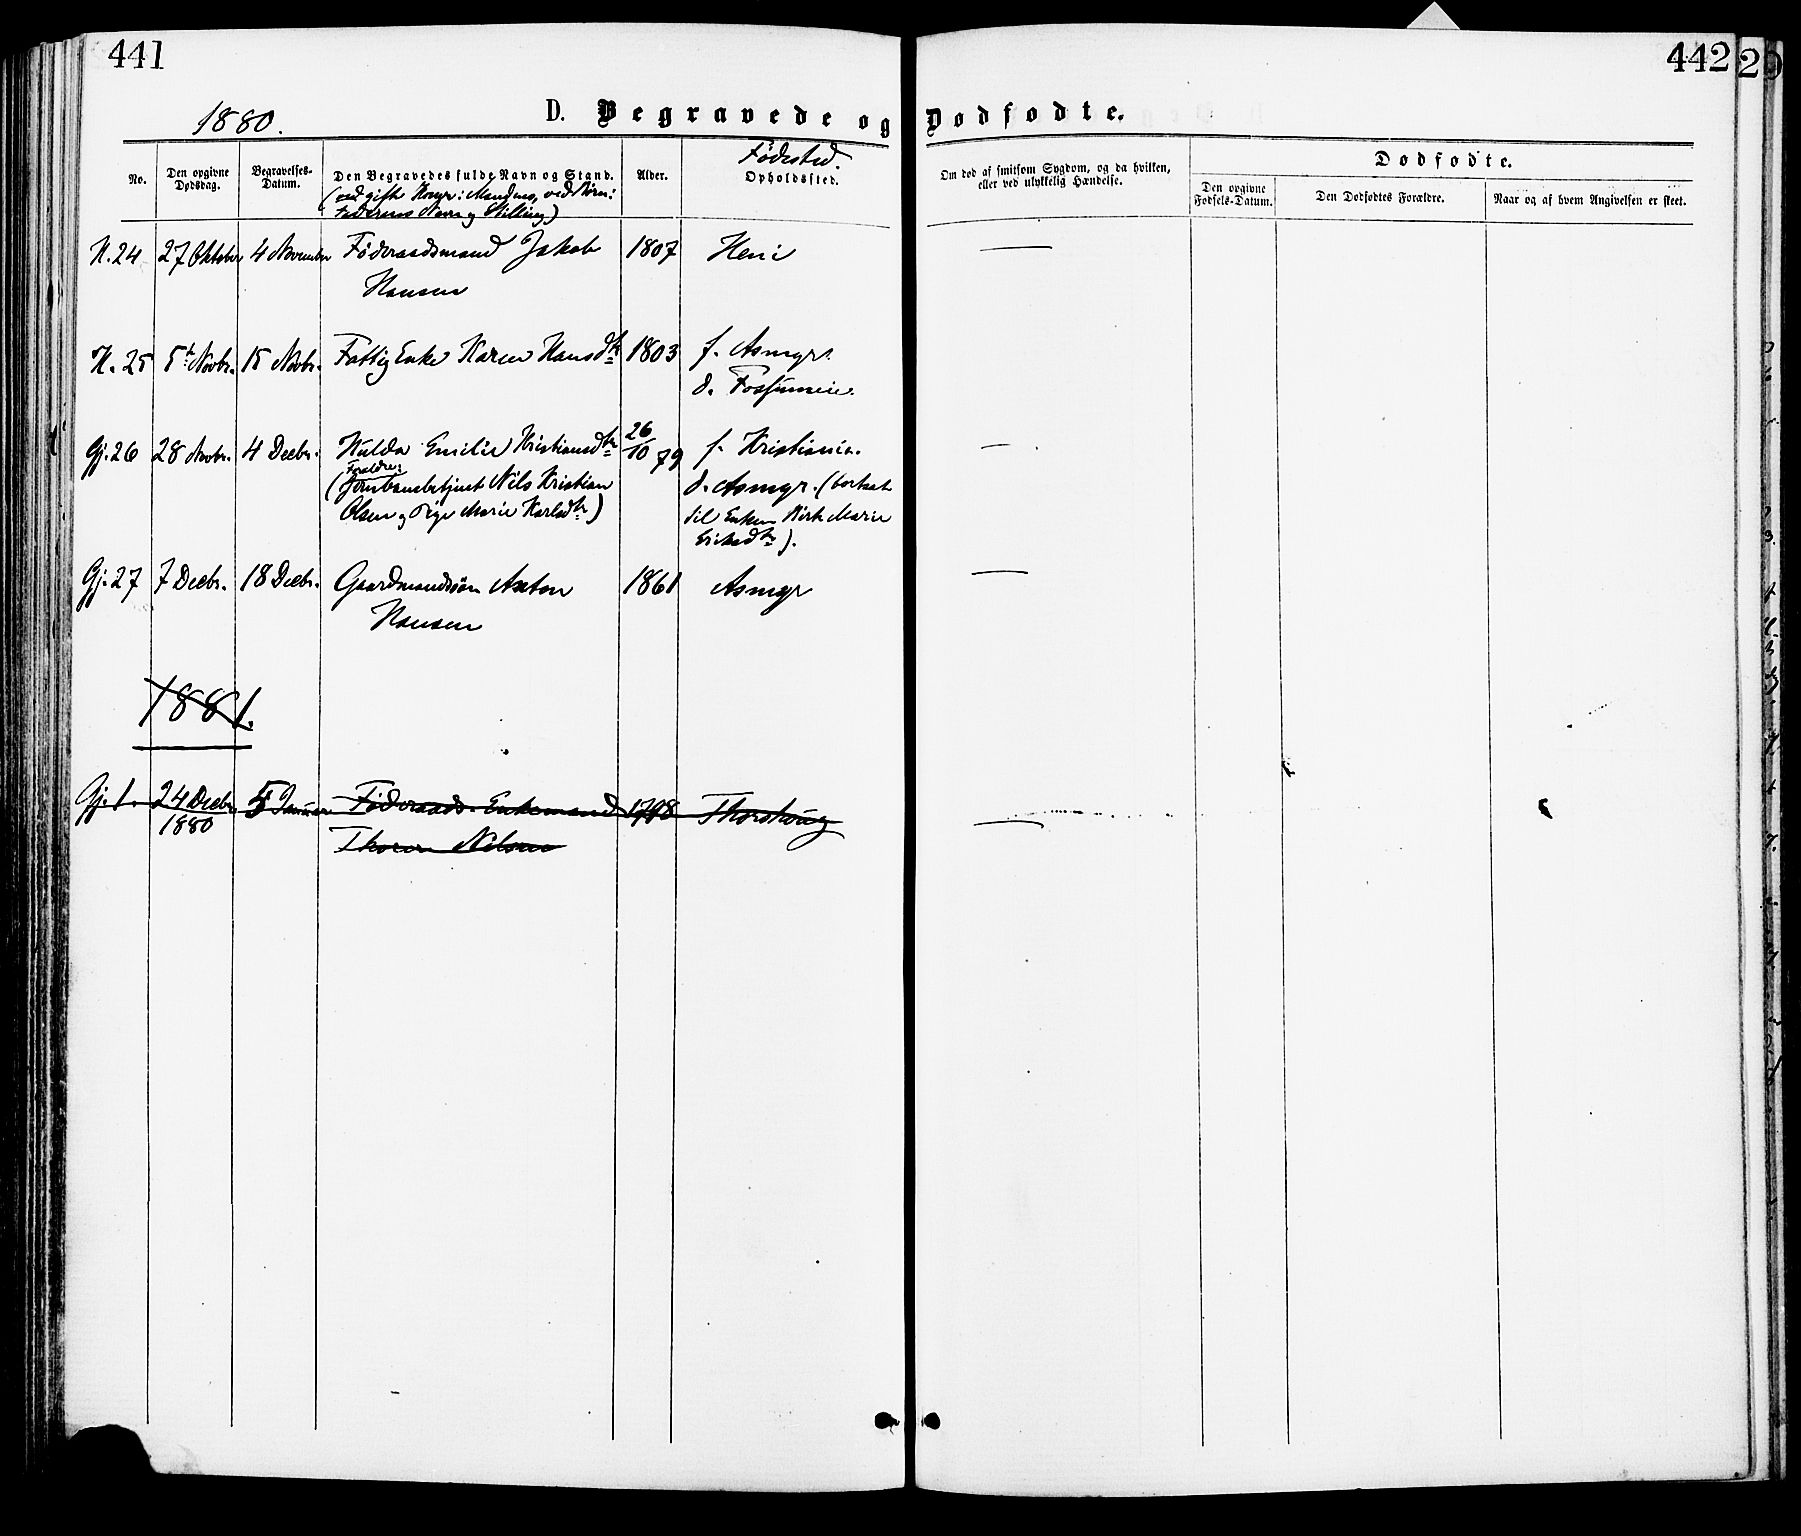 441
442
1880.
D. Begravede og Dødfødte.
No.
Den opgivne Dødsdag.
Begravelses-Datum.
Den Begravedes fulde Navn og Stand.
(ved gifte Koner: Mandens, ved Børn:
Faderens Navn og Stilling)
Alder.
Fødested.
Opholdssted.
Om død af smitsom Sygdom, og da hvilken,
eller ved ulykkelig Hændelse.
Dødfødte.
Den opgivne Fødsels-Datum.
Den Dødfødtes Forældre.
Naar og af hvem Angivelsen er skeet.
N. 24 27 Oktober 4 November Føderaadsmand Jakob 1807
Hansen
N. 25 5t Novbr. 15 Novbr. Fattig Enke Karen Hansdtr 1803 f. Asmyr.
d. Fossumeie.
Gj. 26 28 Novbr. 4 Decbr. Hulda Emilie Kristiansdtr 26/10 79 f. Kristiania.
Forældre:
(Jernbanebetjent Nils Kristian d. Asmyr. (bortsat
Olsen og Pige Marie Karlsdtr) til Enken Marie
Eriksdtr).
Gj. 27 7 Decbr. 18 Decbr. Gaardmandssøn Anton 1861 Asmyr
Hansen
1881.
Gj. 1. 24 Decbr 5 Januar Føderaads-Enkemand 1798 Thorshaug
1880
Thoren Nilsen